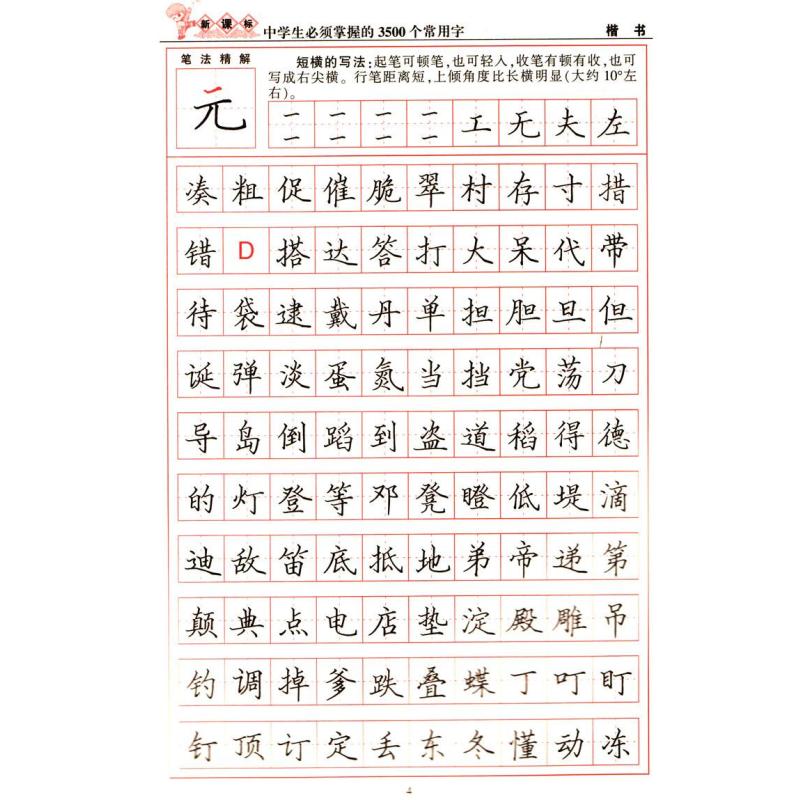 新课标 中学生必须掌握的3500个常用字 楷书
笔法精解
元
短横的写法:起笔可顿笔,也可轻入,收笔有顿有收,也可
写成右尖横。行笔距离短,上倾角度比长横明显(大约10°左
右)。
一 一 一 一 工 无 夫 左
一 一 一 一
凑 粗 促 催 脆 翠 村 存 寸 措
错 D 搭 达 答 打 大 呆 代 带
待 袋 逮 戴 丹 单 担 胆 旦 但
诞 弹 淡 蛋 氮 当 挡 党 荡 刀
导 岛 倒 蹈 到 盗 道 稻 得 德
的 灯 登 等 邓 凳 瞪 低 堤 滴
迪 敌 笛 底 抵 地 弟 帝 递 第
颠 典 点 电 店 垫 淀 殿 雕 吊
钓 调 掉 爹 跌 叠 蝶 丁 叮 盯
钉 顶 订 定 丢 东 冬 懂 动 冻
4